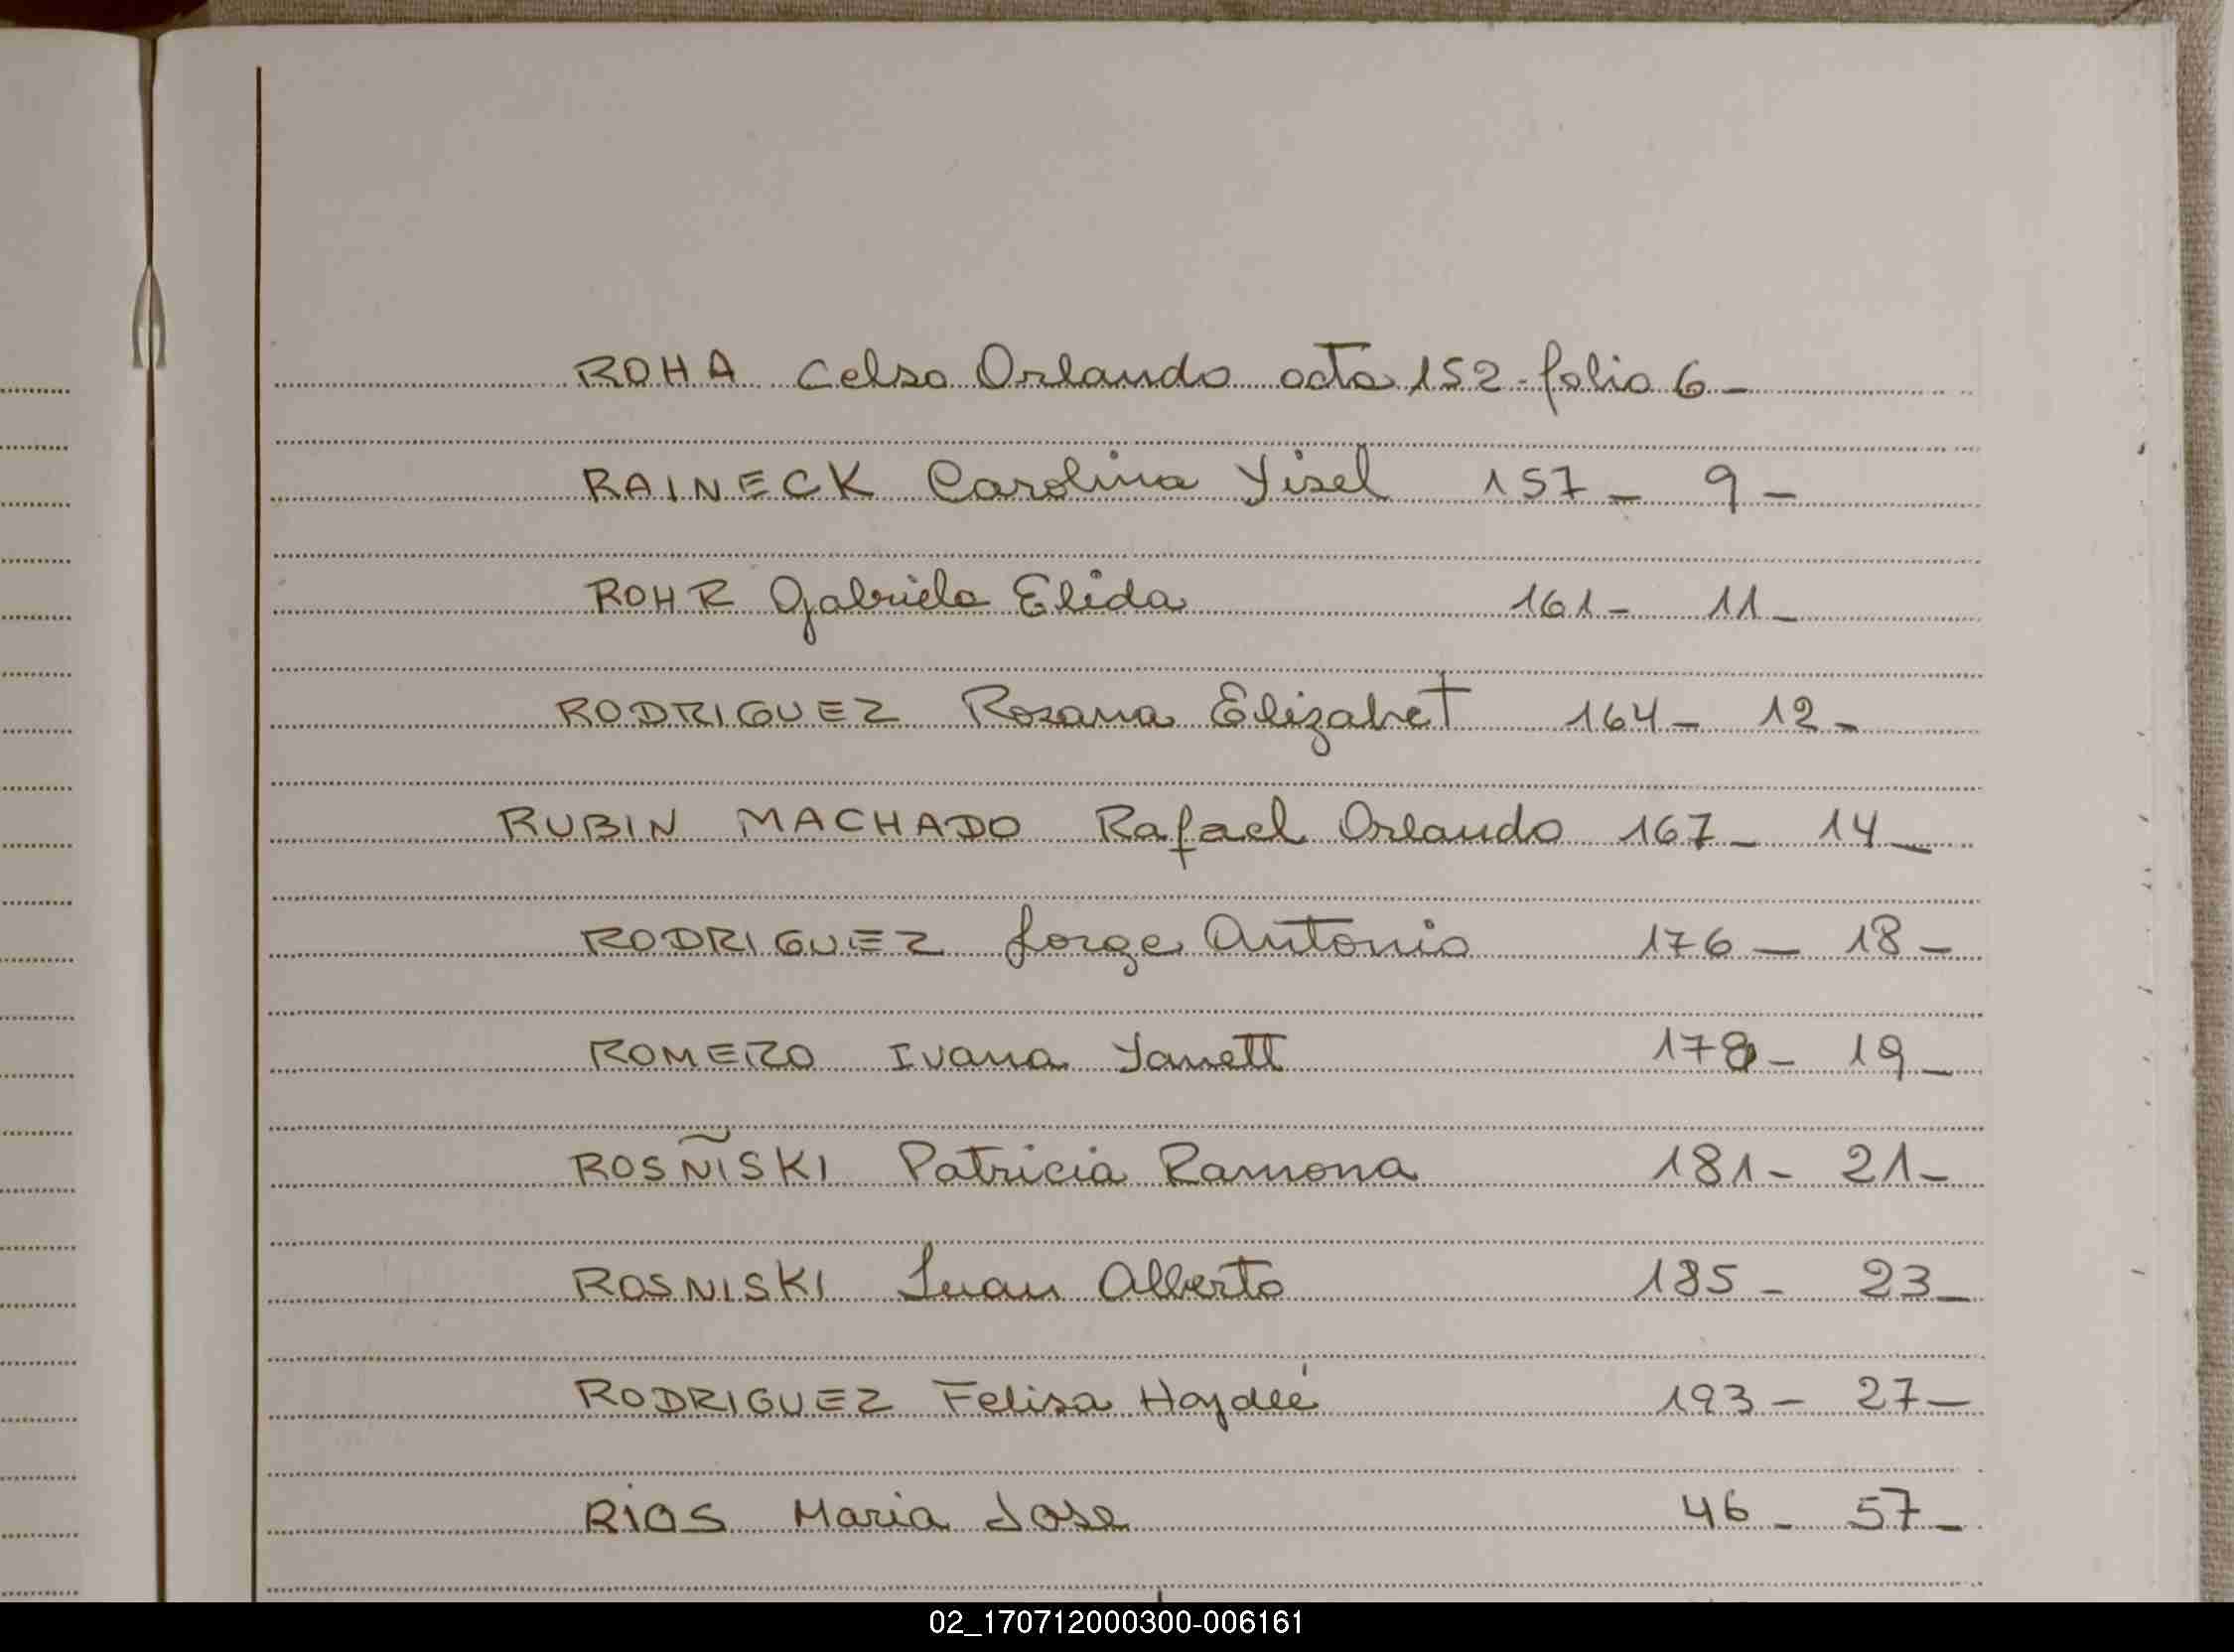 ROHA Celso Orlando acta 152 - folio 6 -
RAINECK Carolina Yisel 157 - 9 -
ROHR Gabriela Elida 161 - 11 -
RODRIGUEZ Rosana Elizabet 164 - 12 -
RUBIN MACHADO Rafael Orlando 167 - 14 -
RODRIGUEZ Jorge Antonio 176 - 18 -
ROMERO Ivana Yanett 178 - 19 -
ROSÑISKI Patricia Ramona 181 - 21 -
ROSNISKI Juan Alberto 185 - 23 -
RODRIGUEZ Felisa Haydeé 193 - 27 -
RIOS Maria Jose 46 - 57 -
02_170712000300-006161